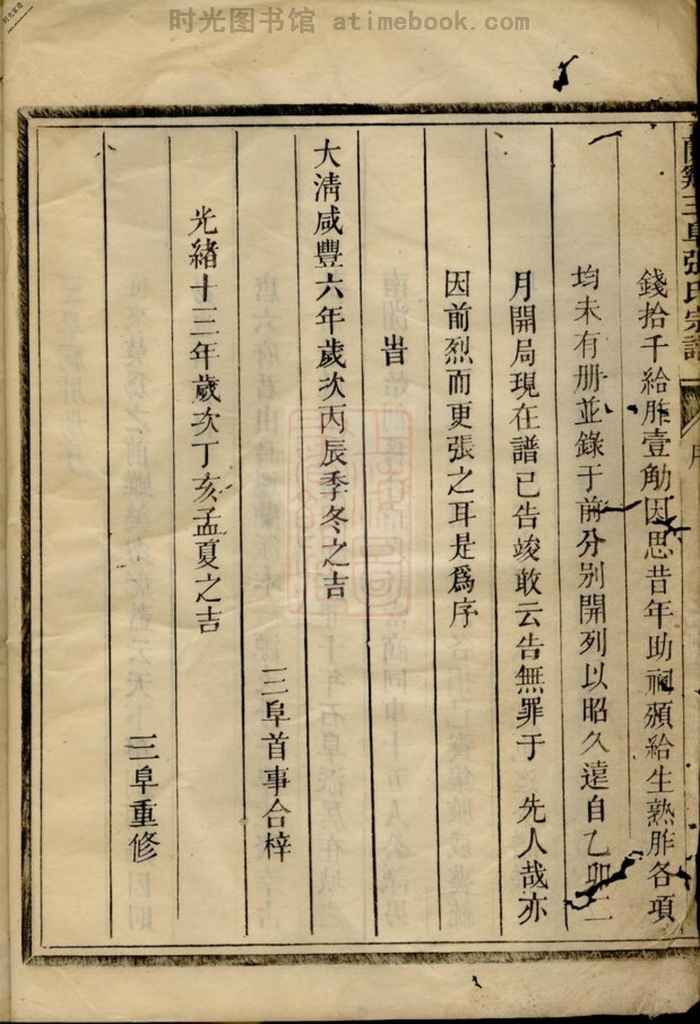 时光图书馆 - atimebook.com
三阜張氏宗譜
錢拾千給胙壹觔因思昔年助祠頒給生熟胙各項
均未有册並錄于前分别開列以昭久遠自乙卯二
月開局現在譜已告竣敢云告無罪于 先人哉亦
因前烈而更張之耳是爲序
旹
大清咸豐六年歲次丙辰季冬之吉
三阜首事合梓
光緒十三年歲次丁亥孟夏之吉
三阜重修